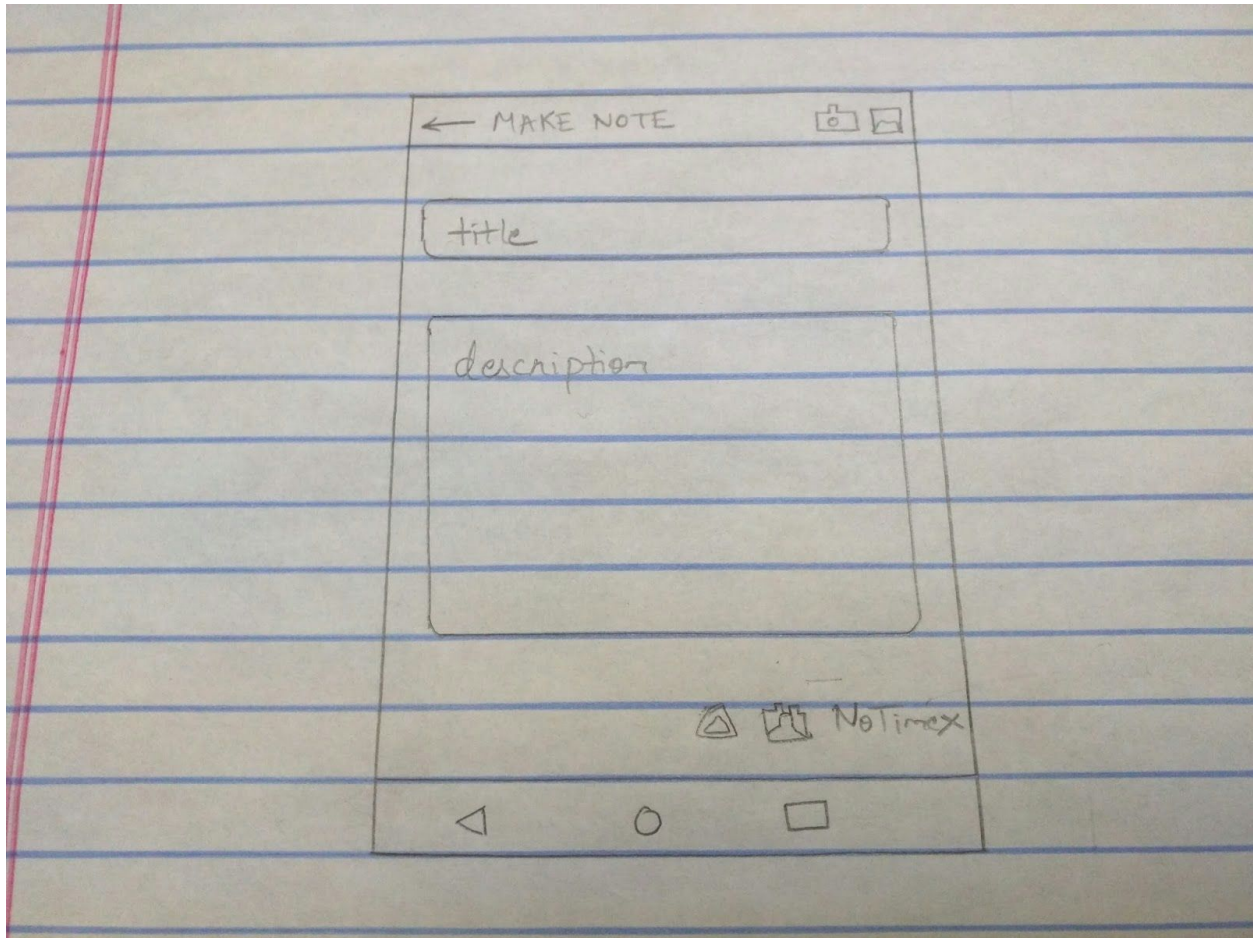 ← MAKE NOTE
title
description
NoTimex